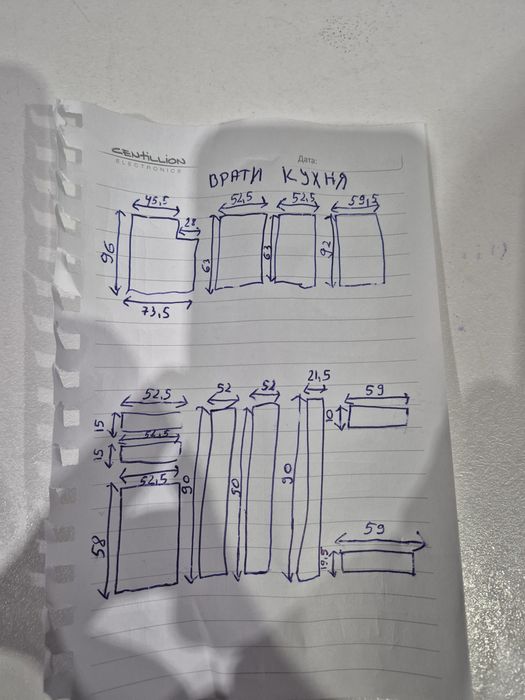 CENTILLION
ELECTRONICS
Дата:
ВРАТИ КУХНЯ
45,5 52,5 52,5 59,5
28
96 63 63 92
73,5
52,5 52 52 21,5 59
15 10
52,5
15
52,5 90 90 90
58 59
19,5